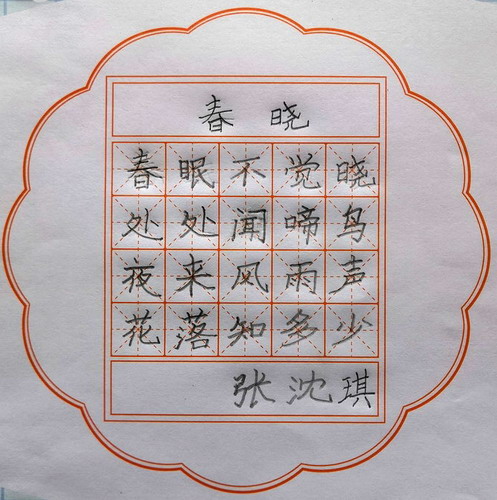 春晓
春眠不觉晓
处处闻啼鸟
夜来风雨声
花落知多少
张沈琪